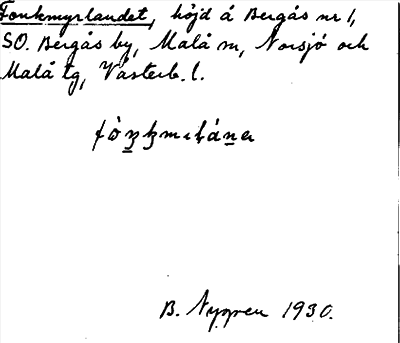 Fonkmyrlandet, höjd å Bergås nr 1,
SO. Bergås by, Malå sn, Norsjö och
Malå tg, Västerb. l.
B. Nygren 1930.